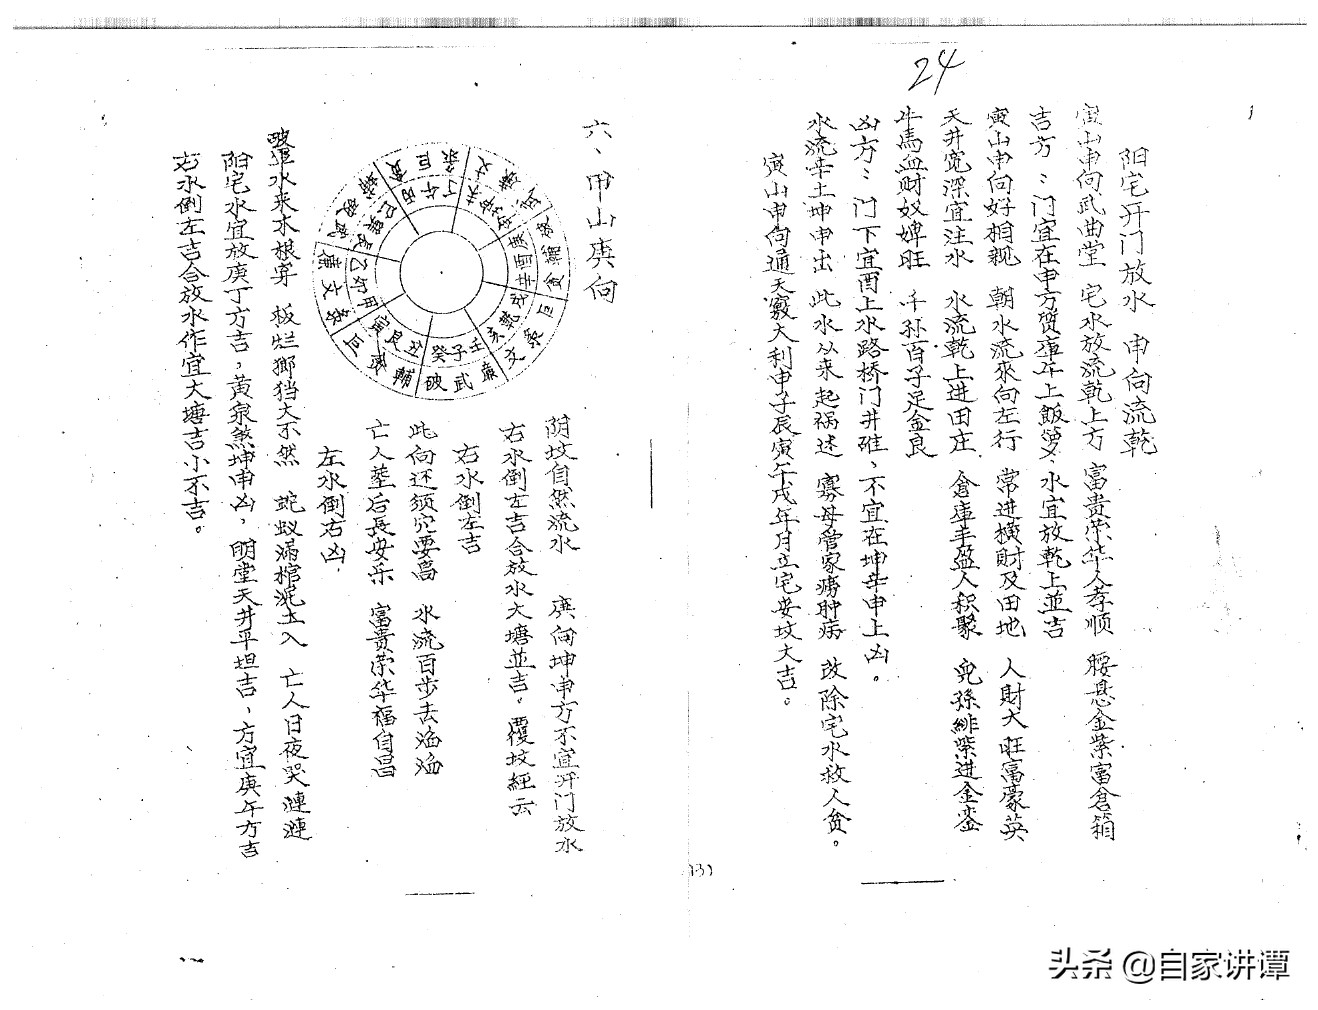 24
阳宅开门放水 申向流乾
寅山申向武曲堂 宅水放流乾上方 富貴荣华人孝顺 腰悬金紫富倉箱
吉方：门宜在申方贸庫午上飯箩、水宜放乾上並吉
寅山申向好相親 朝水流來向左行 常进横財及田地 人財大旺富豪英
天井宽深宜注水 水流乾上进田庄 倉庫丰盈人积聚 兒孫緋紫进金銮
牛馬血财奴婢旺 千孙百子足金良
凶方：门下宜酉上水路桥门井碓、不宜在坤辛申上凶。
水流辛土坤申出 此水从来起祸迷 寡母管家痨肿病 改除宅水救人贫。
寅山申向通天竅大利申子辰寅午戌年月立宅安坟大吉。
六、甲山庚向
丙午丁
未坤申
庚酉辛
戌乾亥
壬子癸
丑艮寅
甲卯乙
辰巽巳
破武廉
阴坟自然流水 庚向坤申方不宜开门放水
右水倒左吉合放水大塘並吉。覆坟經云
右水倒左吉
此向还须穴要高 水流百步去滔滔
亡人塟后長安乐 富貴荣华福自昌
左水倒右凶.
墅水来木根穿 板烂鄉挡大不然 蛇蚁满棺泥土入 亡人日夜哭漣漣
阳宅水宜放庚丁方吉，黄泉煞坤申凶，明堂天井平坦吉、方宜庚午方吉
右水倒左吉合放水作宜大塘吉小不吉。
(13)
头条 @自家讲谭